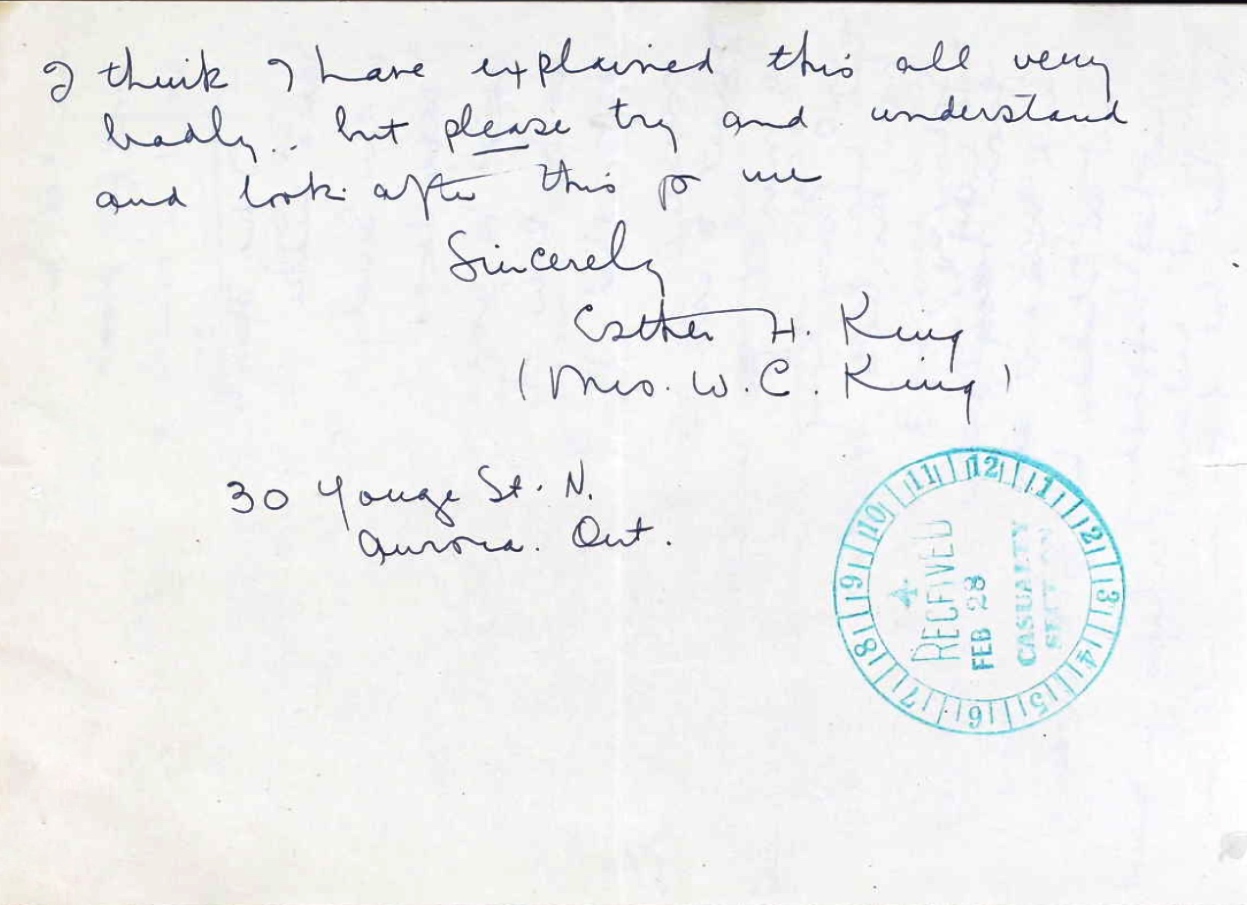 I think I have explained this all very
badly.. but please try and understand
and look after this for me
Sincerely
Esther H. King
(Mrs. W. C. King)
30 Yonge St. N.
Aurora. Ont.
12 1 2 3 4 5 6 7 8 9 10 11
4
RECEIVED
FEB 28
CASUALTY
SECTION